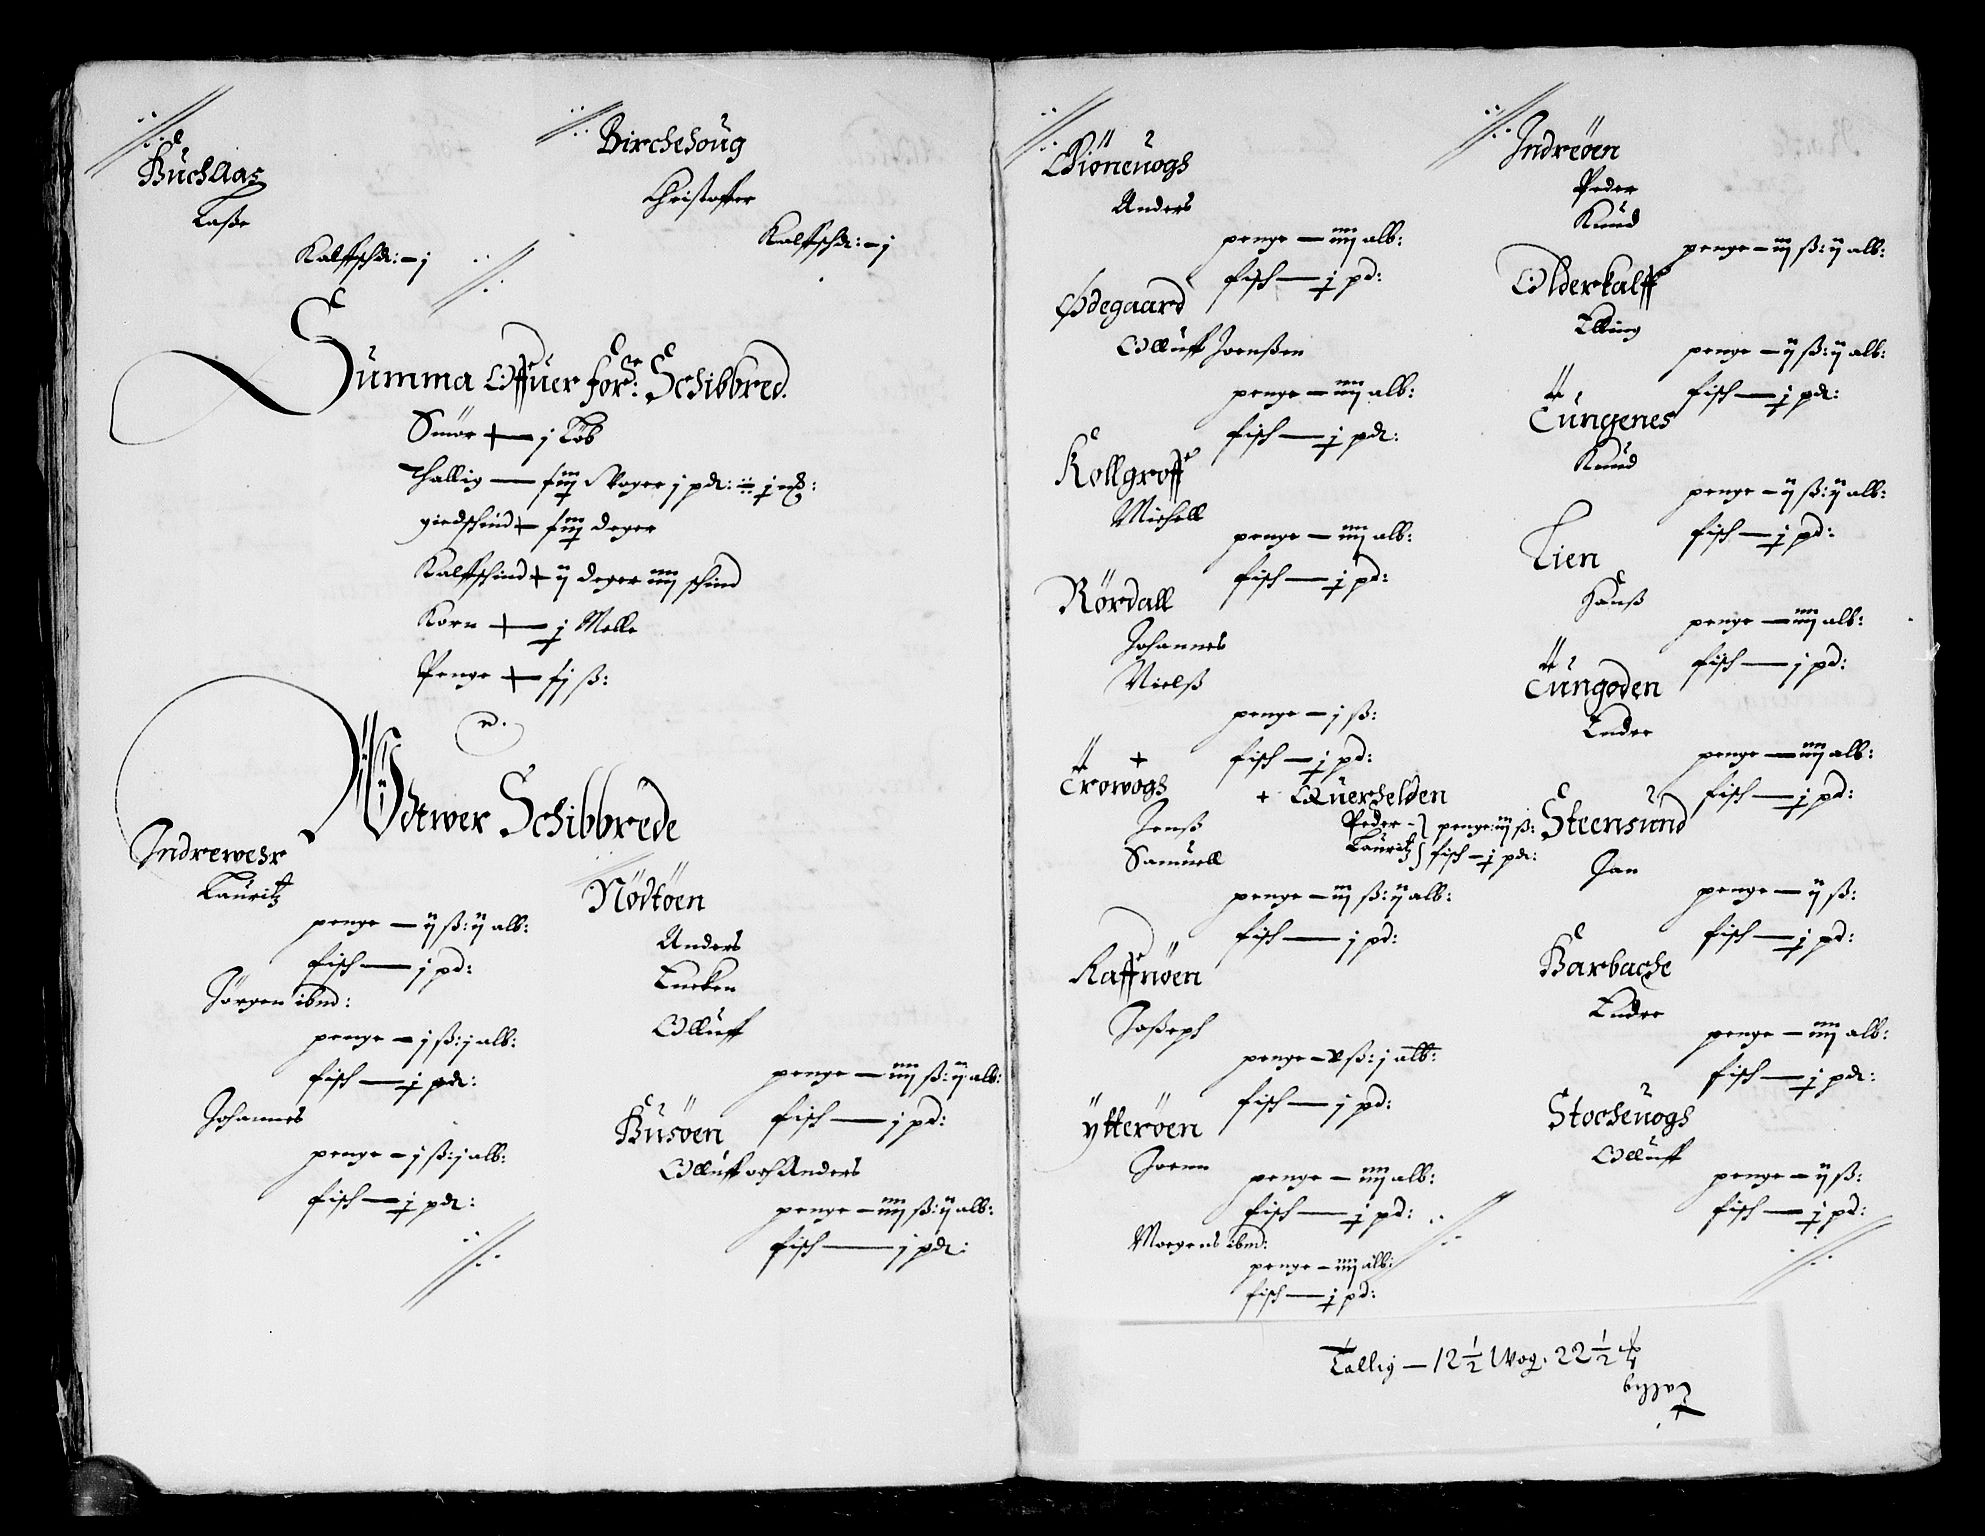 Büchaas
Laße
Kalffschd: – j
Birchehoug
Christoffer
Kalffschd: – j
Summa Offuer for: Schibbred.
Smör — j Löb
Thallig — Woger j pd:
giedschind — deger
Kalffschind — ij deger iiij schind
Korn — j Melle
Penge — ß:
Vdtwer Schibbrede
Indrewehr
Lauritz
penge – ij ß: ij alb:
fisch — j pd:
Jørgen ibm:
penge – j ß: j alb:
fisch — j pd:
Johannes
penge – j ß: j alb:
fisch — j pd:
Nödtöen
Anders
Olluff
penge – iiij ß: ij alb:
fisch — j pd:
Büsöen
Olluff och Anders
penge – iiij ß: ij alb:
fisch — j pd:
Anders
penge – iiij alb:
fisch — j pd:
Ødegaard
Olluff Joenßen
penge – iiij alb:
fisch — j pd:
Kollgroff
Michell
penge – iiij alb:
fisch — j pd:
Rördall
Johannes
Nielß
penge – j ß:
fisch — j pd:
Trowogs
Jenß
Samuell
penge – iij ß: ij alb:
fisch — j pd:
+ Quershelden
Peder
Lauritz
penge: iij ß:
fisch – j pd:
Raffnöen
Joßeph
penge – v ß: j alb:
fisch — j pd:
Ytteröen
Joenn
penge – iiij alb:
fisch — j pd:
Mogens ibm:
penge – iiij alb:
fisch — j pd:
Indreöen
Peder
Knud
penge – iij ß: ij alb:
Olderkalff
Elling
penge – ij ß: ij alb:
fisch — j pd:
Tüngenes
Knud
penge – ij ß: ij alb:
fisch — j pd:
Lien
Hanß
penge – iiij alb:
fisch — j pd:
Tüngoden
Endre
penge – iiij alb:
fisch — j pd:
Steensund
Jan
penge – ij ß:
fisch — j pd:
Barbache
Endre
penge – iiij alb:
fisch — j pd:
Stocheuogs
Olluff
penge – ij ß:
fisch — j pd:
Tallig — 12 1/2 Wog. 22 1/2
Tallig